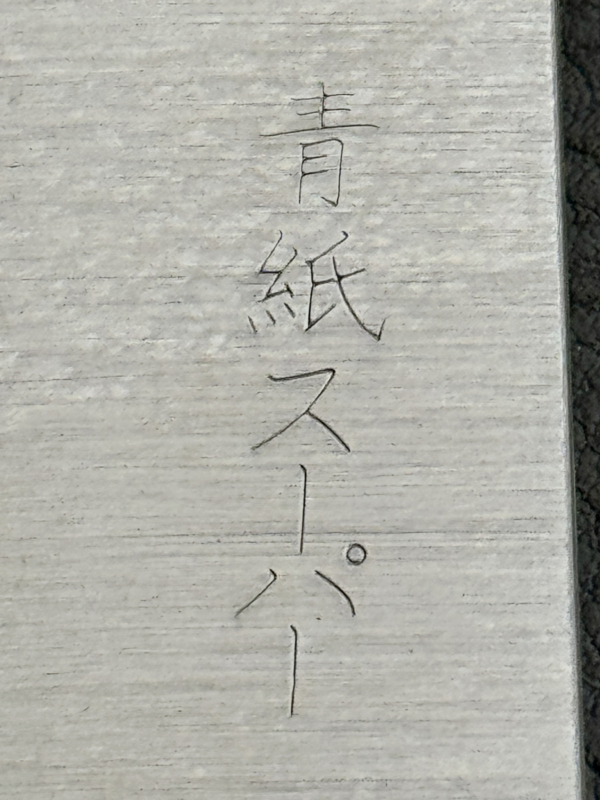 青紙スーパー